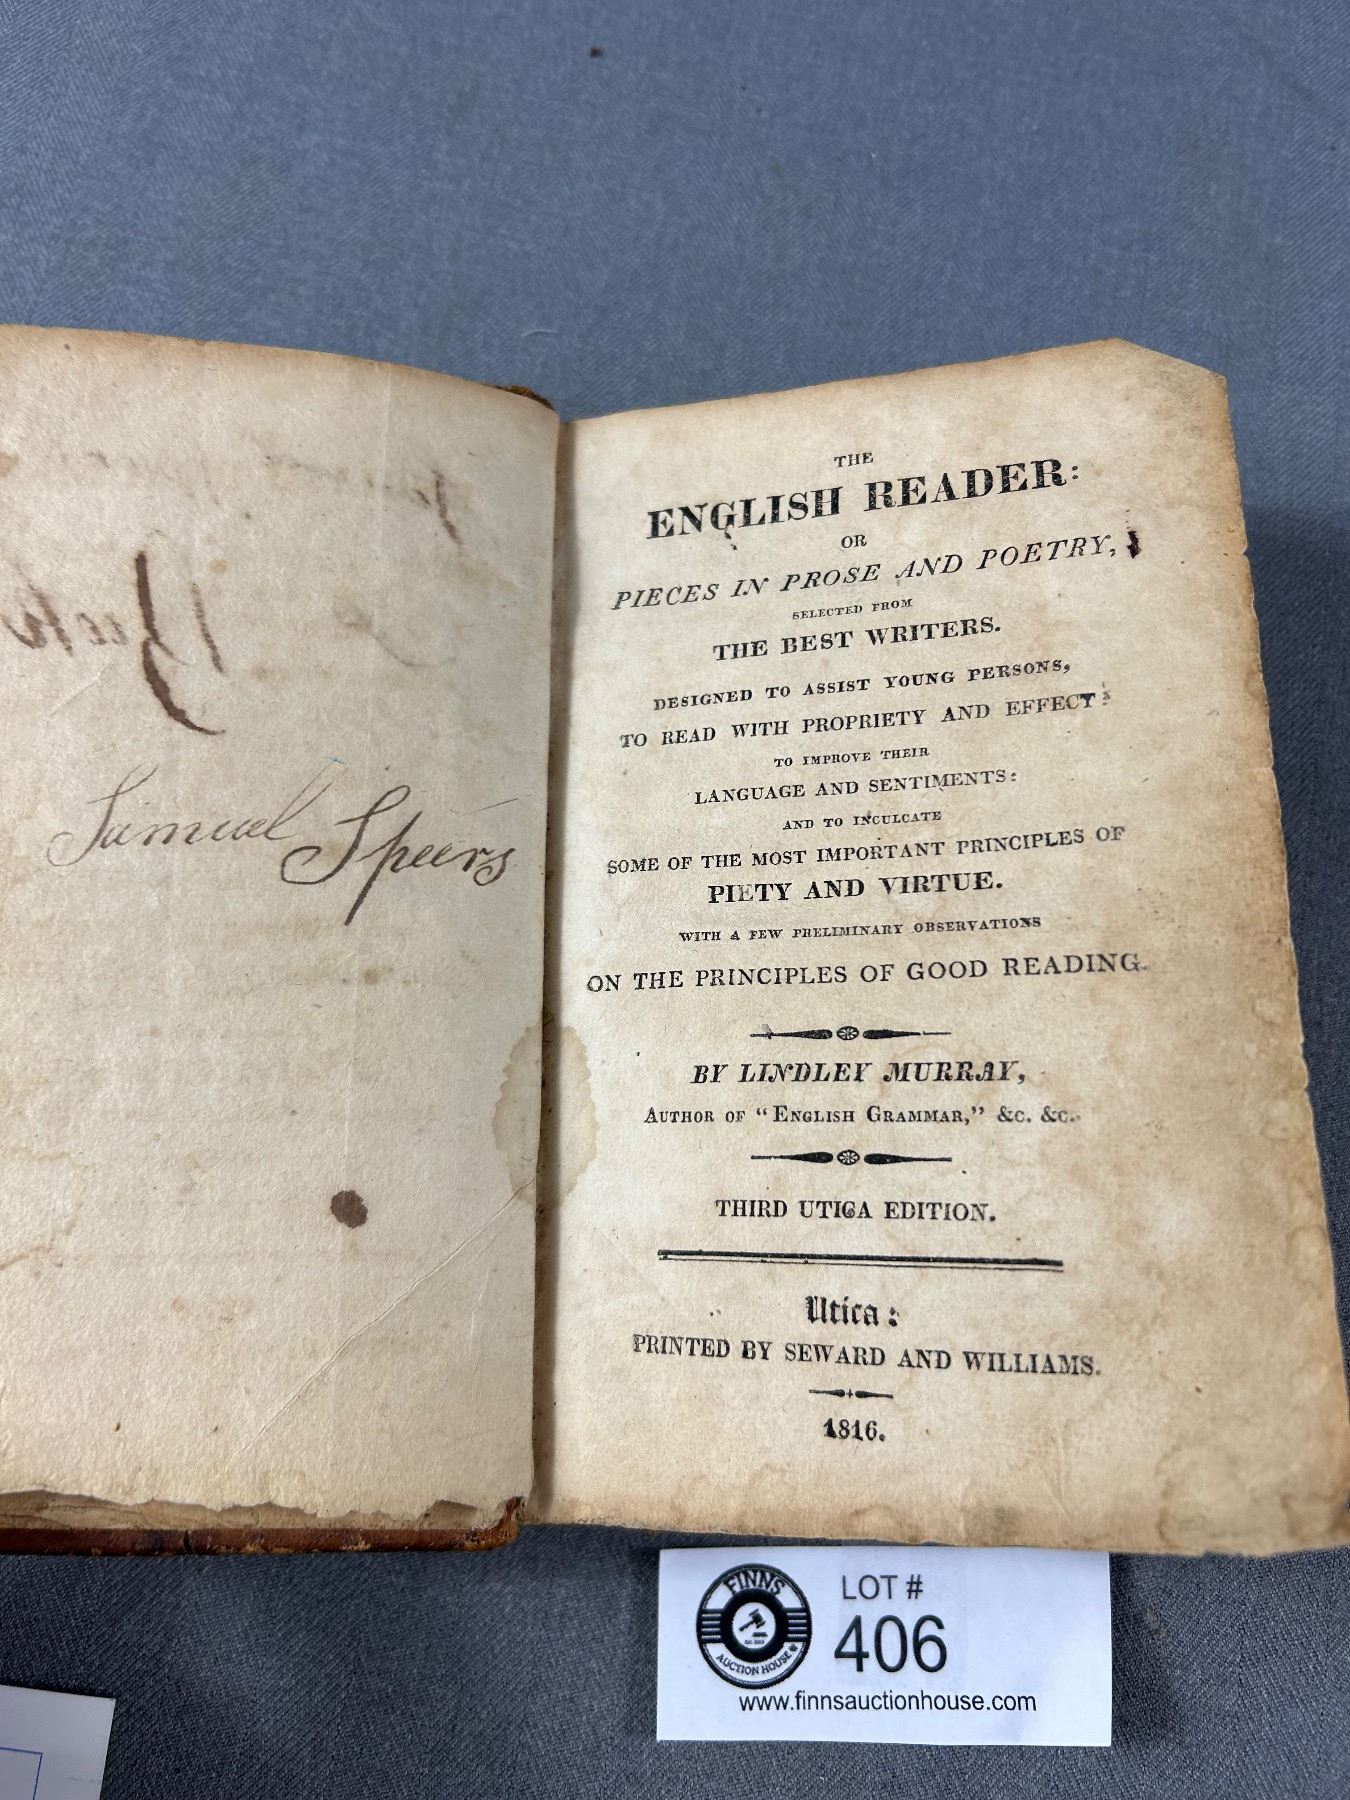 Samuel Speers
THE
ENGLISH READER:
OR
PIECES IN PROSE AND POETRY,
SELECTED FROM
THE BEST WRITERS.
DESIGNED TO ASSIST YOUNG PERSONS,
TO READ WITH PROPRIETY AND EFFECT:
TO IMPROVE THEIR
LANGUAGE AND SENTIMENTS:
AND TO INCULCATE
SOME OF THE MOST IMPORTANT PRINCIPLES OF
PIETY AND VIRTUE.
WITH A FEW PRELIMINARY OBSERVATIONS
ON THE PRINCIPLES OF GOOD READING.
BY LINDLEY MURRAY,
AUTHOR OF "ENGLISH GRAMMAR," &C. &C.
THIRD UTICA EDITION.
Utica:
PRINTED BY SEWARD AND WILLIAMS.
1816.
FINNS
AUCTION HOUSE
LOT #
406
www.finnsauctionhouse.com